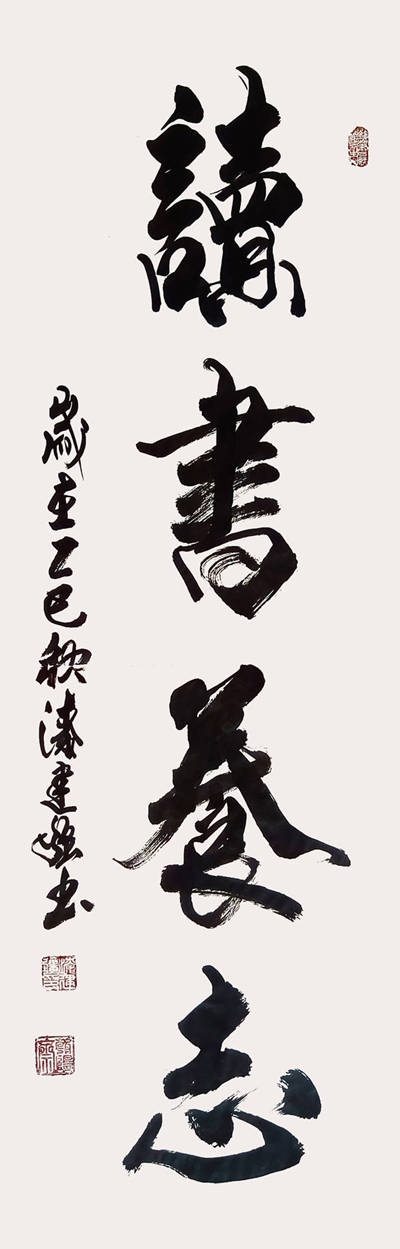 讀書養志
歲在乙巳秋 建 書